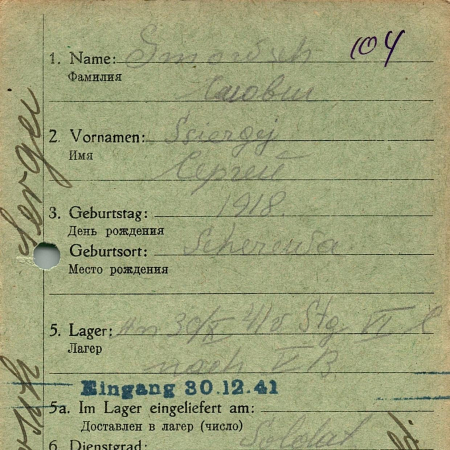 104
1. Name:
Фамилия
2. Vornamen: Ssiergej
Имя Сергей
3. Geburtstag: 1918.
День рождения
Geburtsort:
Место рождения
5. Lager: Am 30/X
Лагер
nach V B.
Eingang 30.12.41
5a. Im Lager eingeliefert am:
Доставлен в лагер (число)
6. Dienstgrad: Soldat